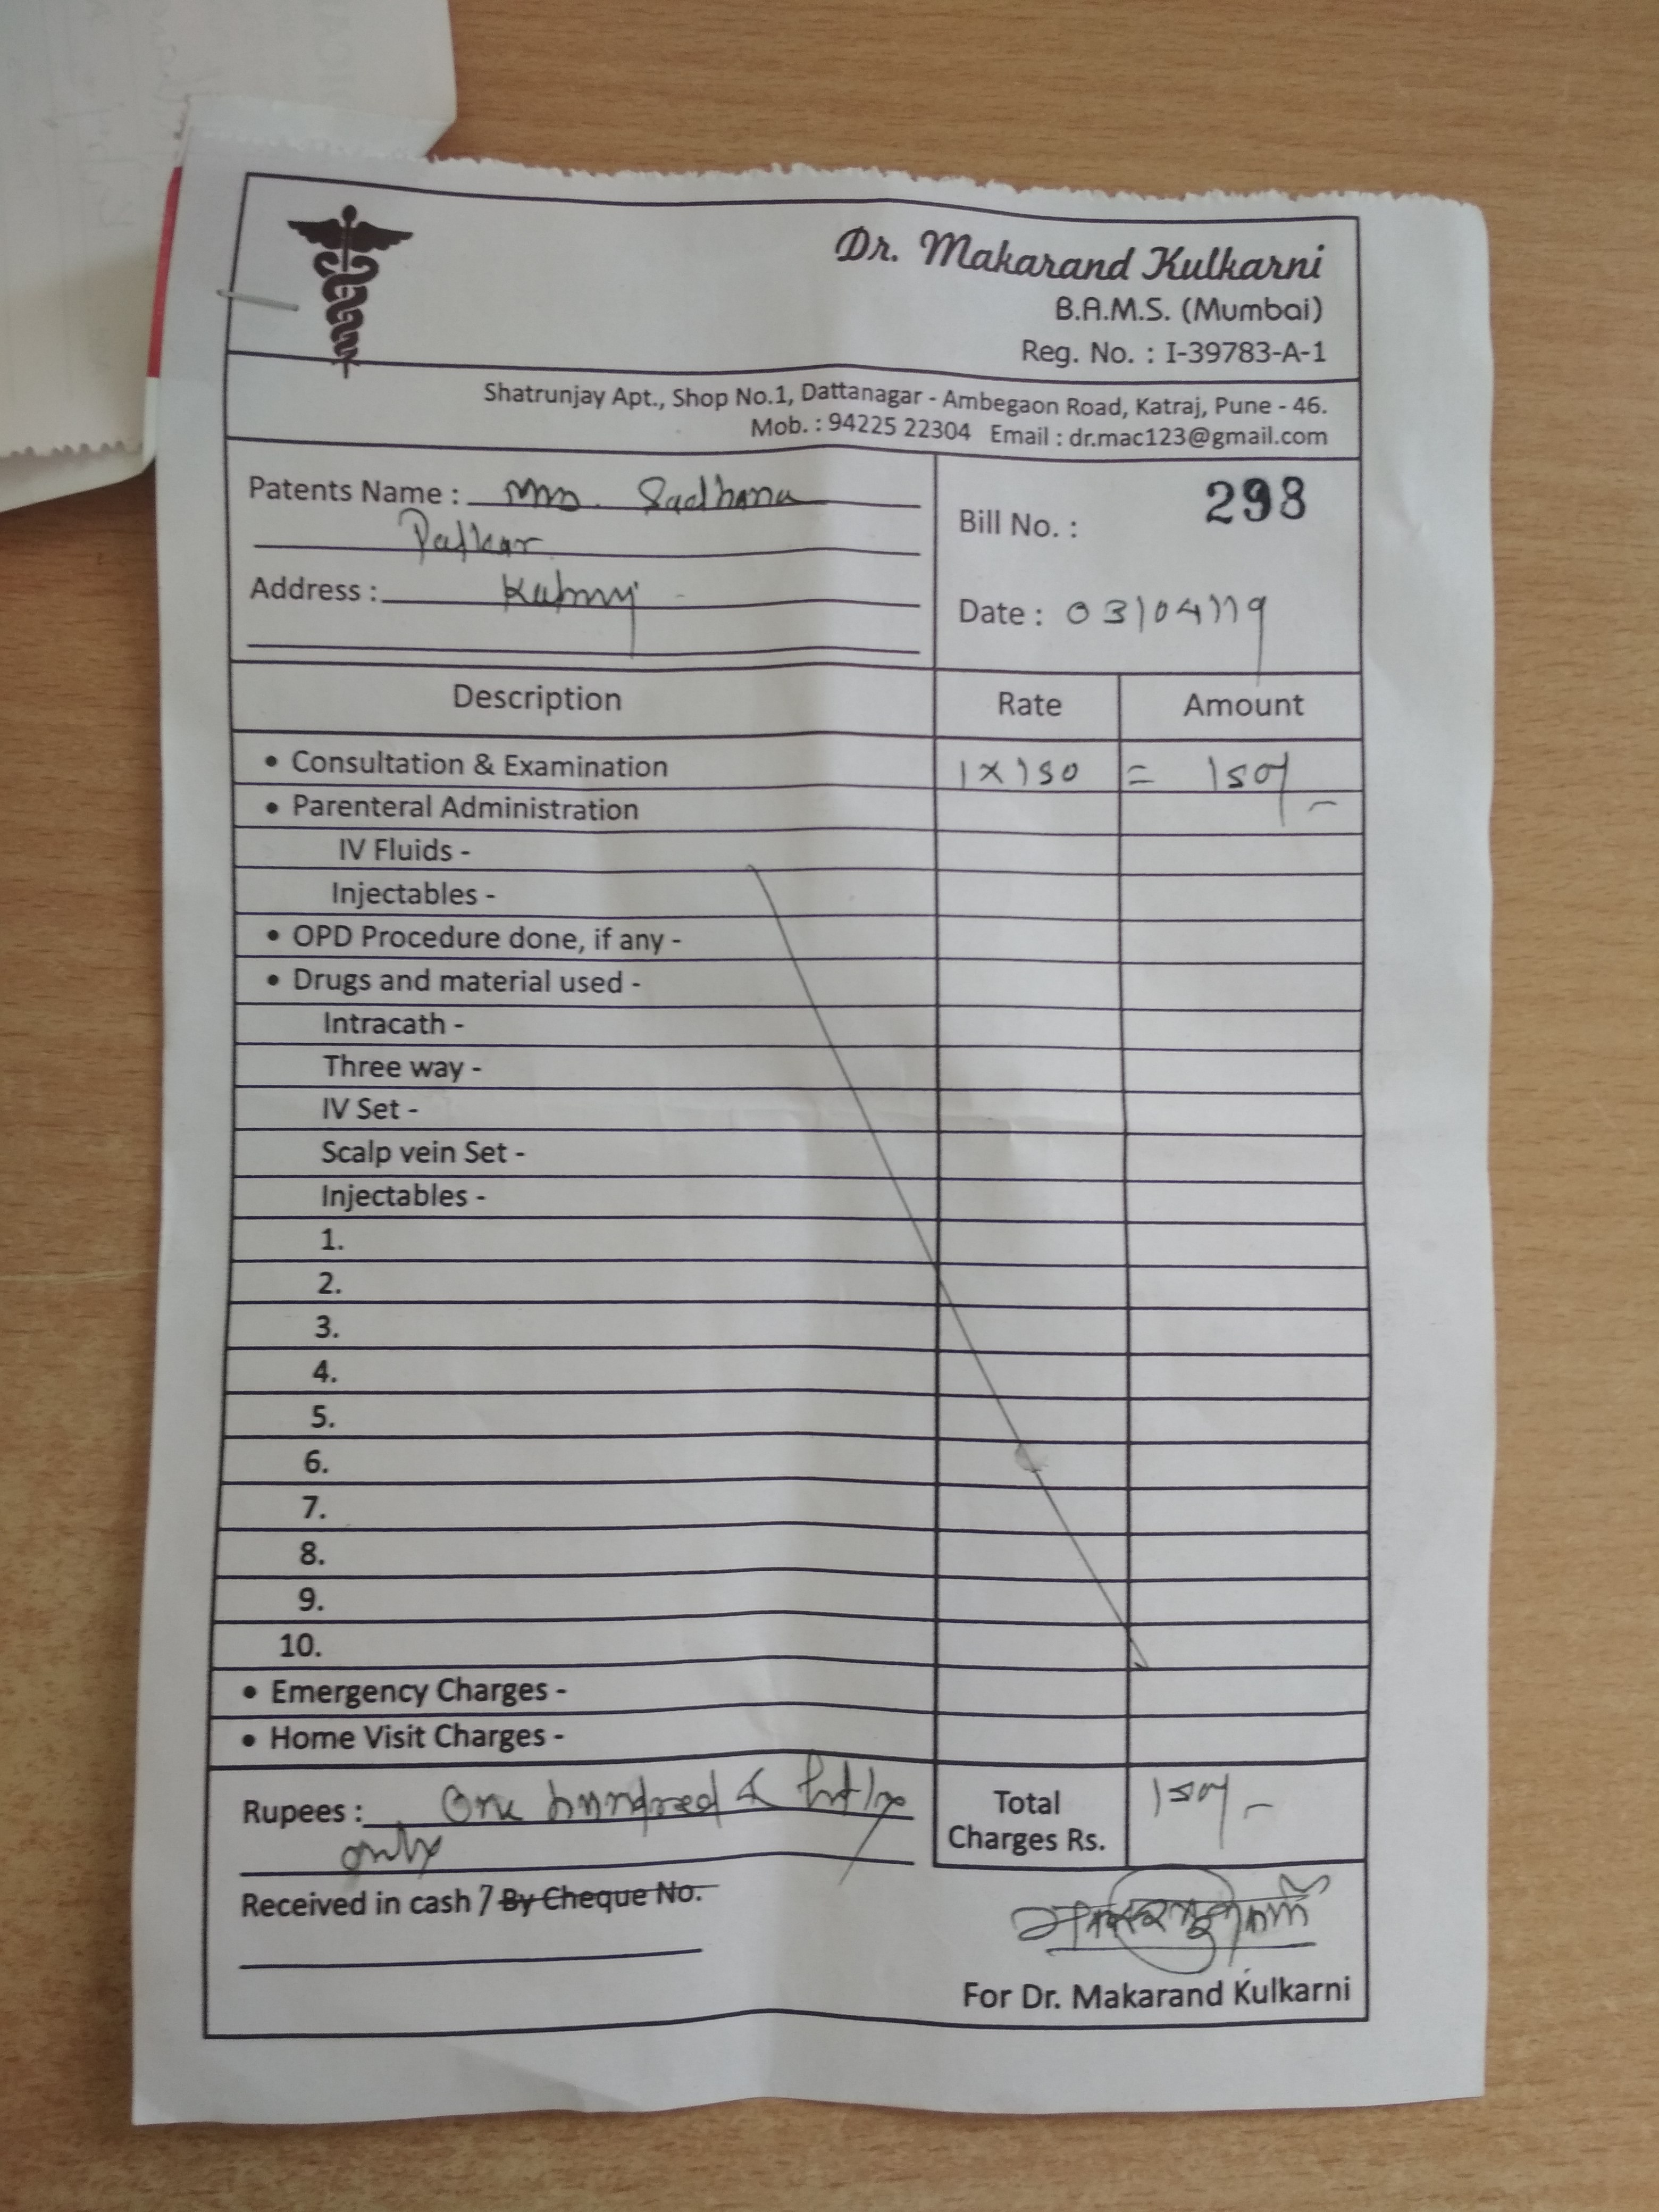 Dr. Makarand Kulkarni
B.A.M.S. (Mumbai)
Reg. No. : I-39783-A-1
Shatrunjay Apt., Shop No.1, Dattanagar - Ambegaon Road, Katraj, Pune - 46.
Mob. : 94225 22304 Email : dr.mac123@gmail.com
Patents Name : Mrs. Sadhana
Patkar
Address : Katraj
Bill No. : 298
Date : 03/04/19
Description Rate Amount
• Consultation & Examination 1 x 150 = 150/-
• Parenteral Administration
IV Fluids -
Injectables -
• OPD Procedure done, if any -
• Drugs and material used -
Intracath -
Three way -
IV Set -
Scalp vein Set -
Injectables -
1.
2.
3.
4.
5.
6.
7.
8.
9.
10.
• Emergency Charges -
• Home Visit Charges -
Rupees : One hundred & fifty
only
Total
Charges Rs. 150/-
Received in cash / By Cheque No.
For Dr. Makarand Kulkarni